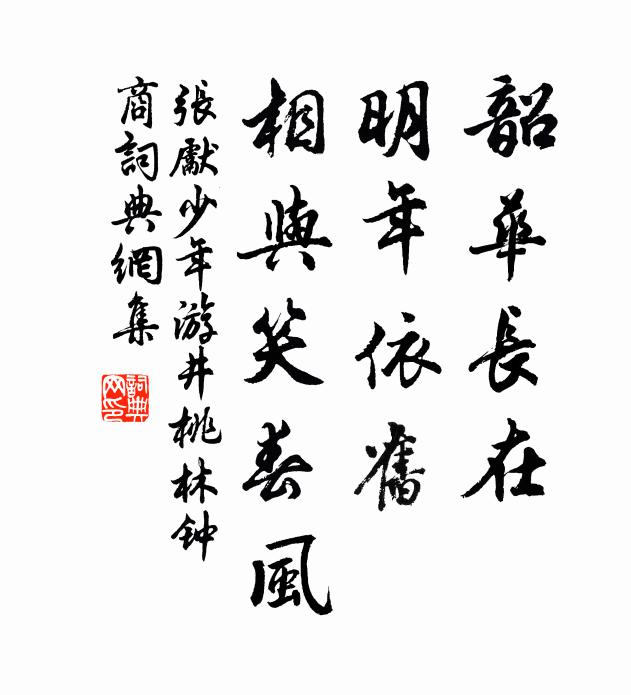 韶華長在
明年依舊
相與笑春風
張獻少年游井桃林钟
商詞典網集
詞典网印